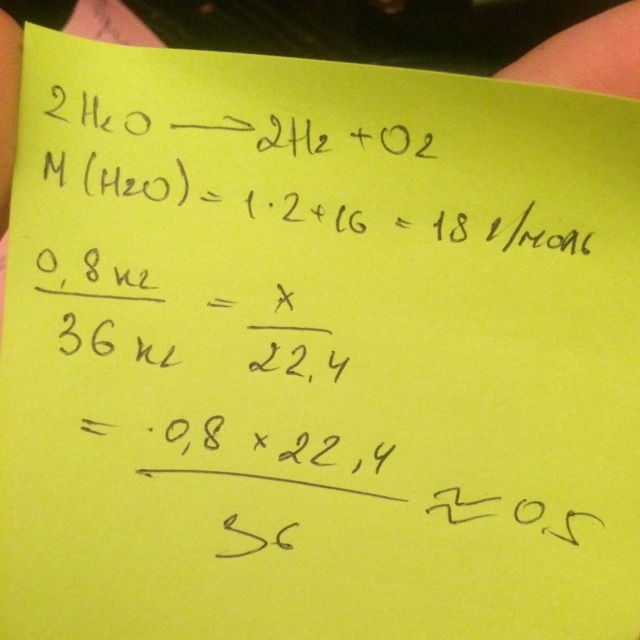 2H2O → 2H2 + O2
M (H2O) = 1·2+16 = 18 г/моль
0,8 кг / 36 кг = x / 22,4
= 0,8 × 22,4 / 36 ≈ 0,5